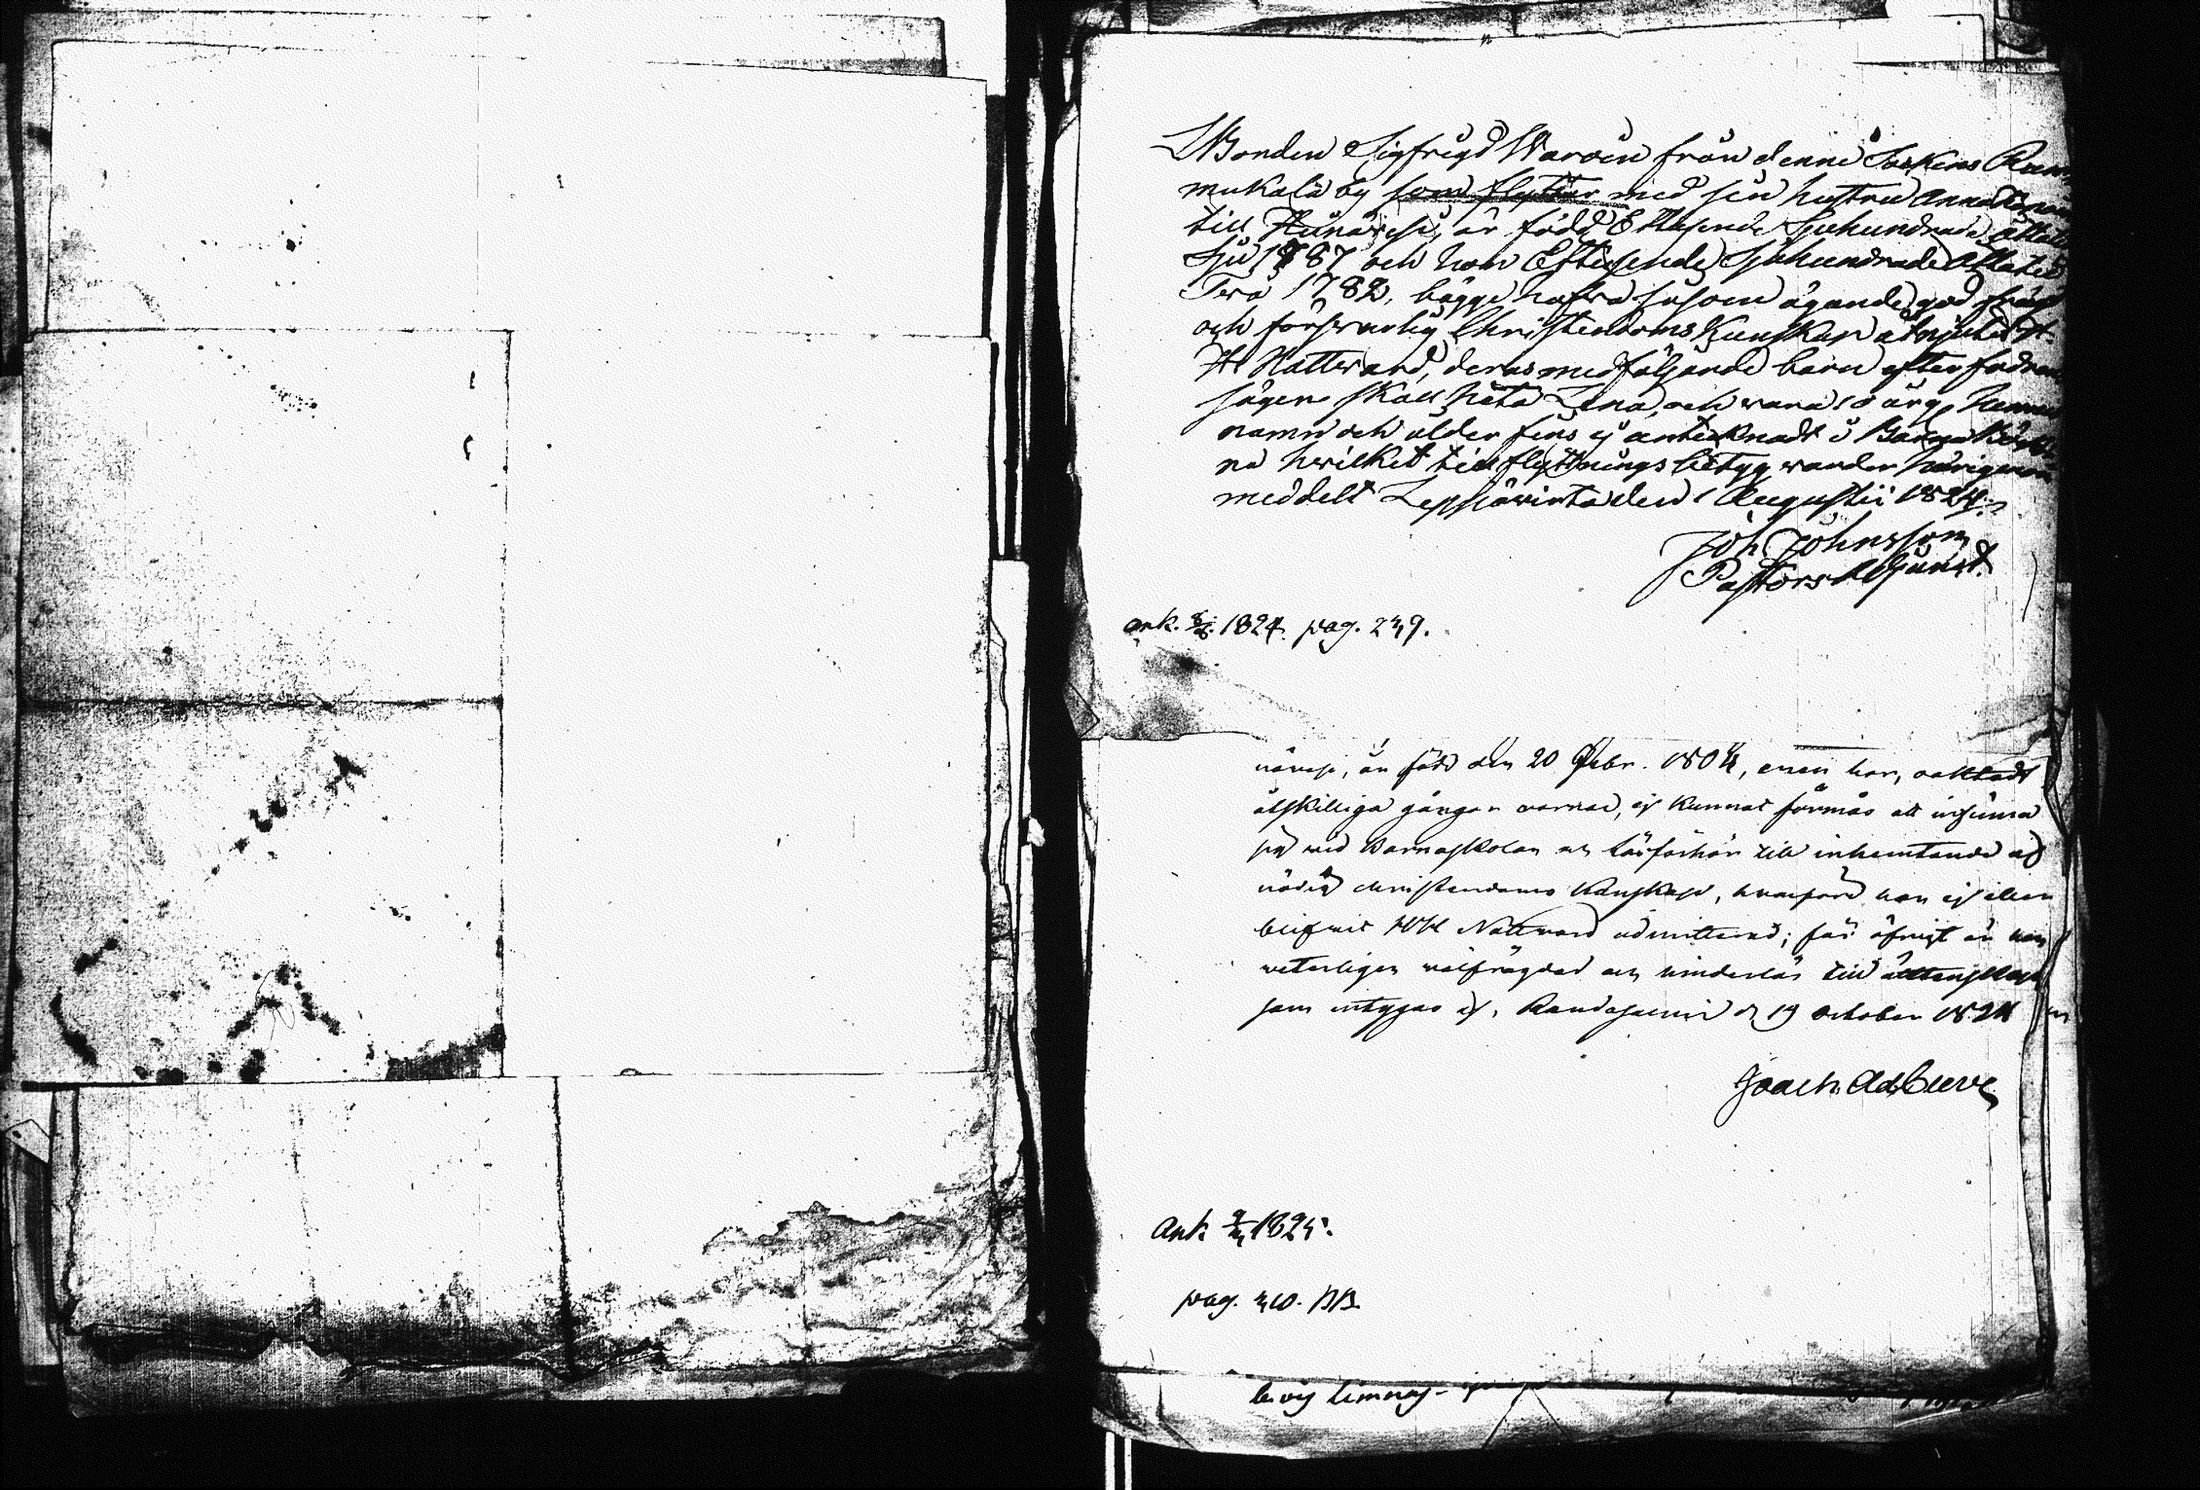 Bonden Sigfrid Waroin från denne Sockens Ram
mukala by som flyttar med sin hustru Anna
till är född Ettusende Sjuhundrade åttatio
Sju 1787 och hon Ettusende Sjuhundrade Åttatio
Två 1782, bägge hafva såsom ägande god fräjd
och försvarlig Christendoms Kunskap åtnjutit H.
H Nattvard, deras medföljande barn efter fadrens
sägen skall heta Lena, och vara 10 år, hennes
namn och ålder fins ej antecknadt i Barnaböcker
na hvilket till flyttnings betyg warder härigenom
meddelt Leppävirta den 1 Augustii 1824.
Joh Johnsson
Pastors Adjunct.
ank. 1824. pag. 239.
är född den 20 Febr. 1804, men har, oaktadt
åtskilliga gånger varnad, ej kunnat förmås att infinna
sig vid Barnaskolan och läsförhör till inhemtande af
nödig christendoms kunskap, hvarföre han ej eller
blifvit HH Nattvard admitterad; för öfrigt är han
veterligen välfrägdad och hinderslös till äktenskap
som intygas af, Randasalmi d 19 October 1824
Joach. Ad. Cleve
Ank 1825.
pag. 310. BB.